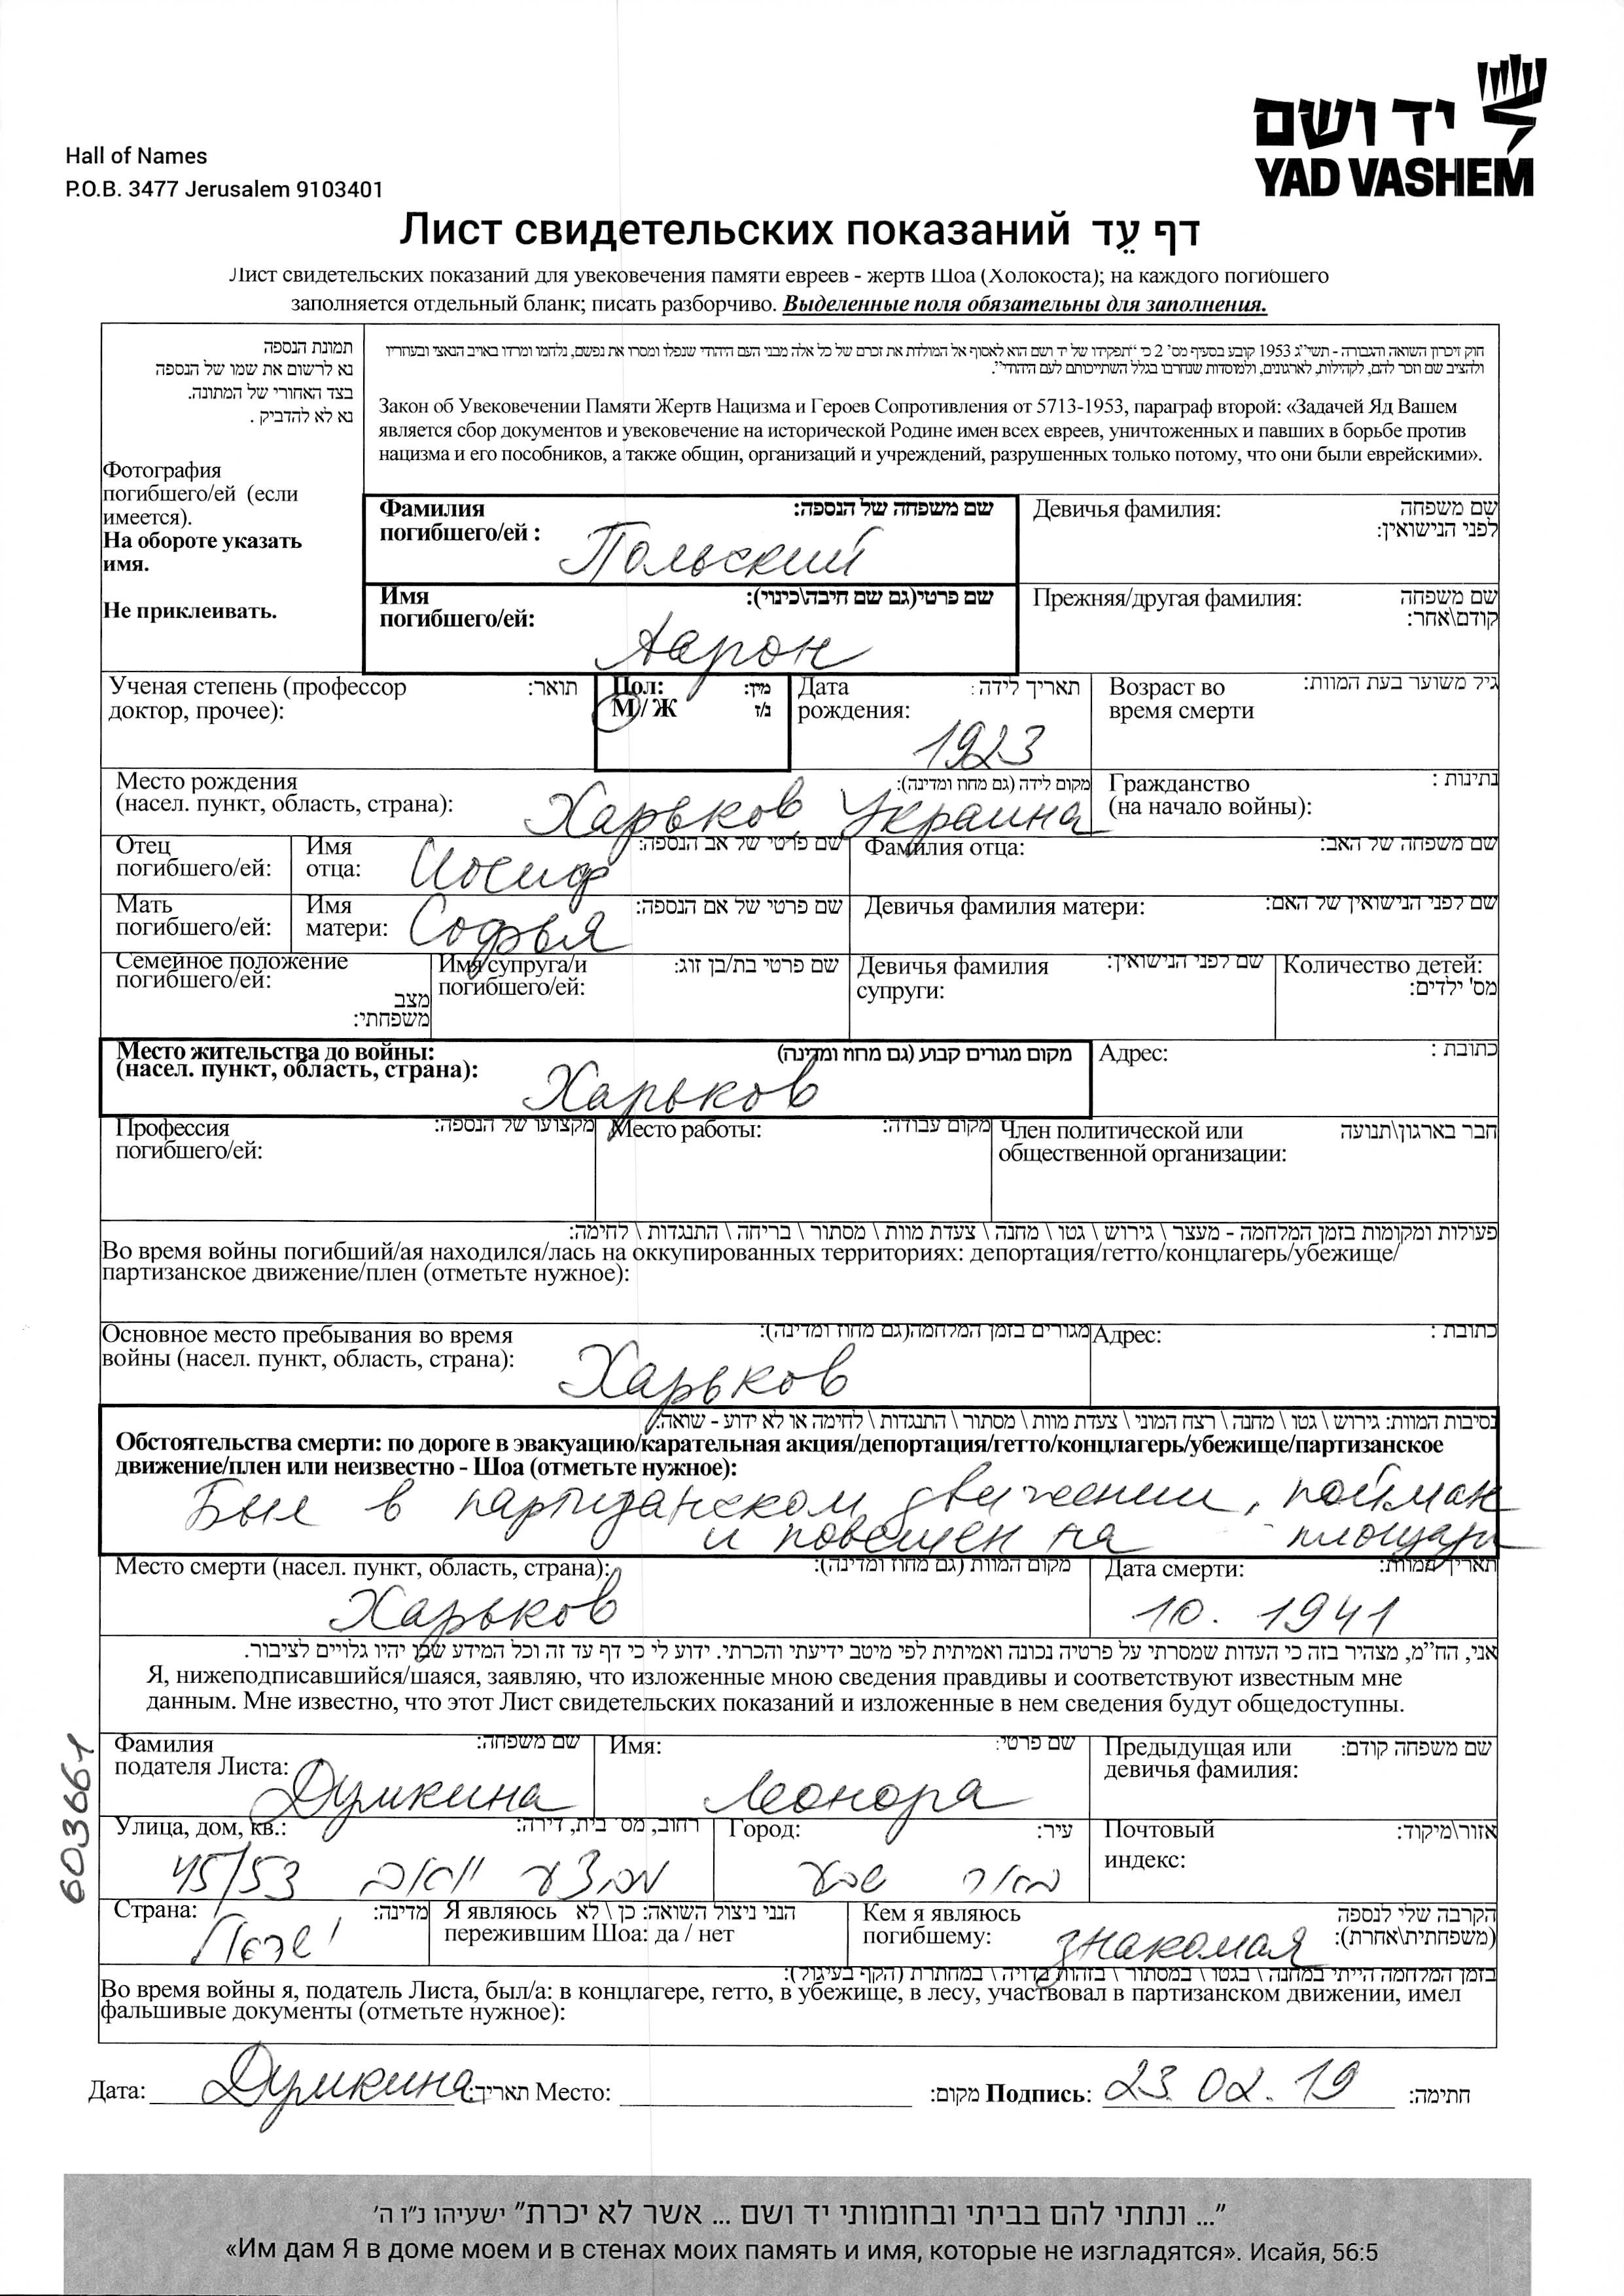 יד ושם
YAD VASHEM
Hall of Names
P.O.B. 3477 Jerusalem 9103401
Лист свидетельских показаний דף עֵד
Лист свидетельских показаний для увековечения памяти евреев - жертв Шоа (Холокоста); на каждого погибшего
заполняется отдельный бланк; писать разборчиво. Выделенные поля обязательны для заполнения.
תמונת הנספה
נא לרשום את שמו של הנספה
בצד האחורי של התמונה.
נא לא להדביק .
Фотография
погибшего/ей (если
имеется).
На обороте указать
имя.
Не приклеивать.
חוק זיכרון השואה והגבורה - תשי"ג 1953 קובע בסעיף מס' 2 כי "תפקידו של יד ושם הוא לאסוף אל המולדת את זכרם של כל אלה מבני העם היהודי שנפלו ומסרו את נפשם, נלחמו ומרדו באויב הנאצי ובעוזריו
ולהציב שם וזכר להם, לקהילות, לארגונים, ולמוסדות שנחרבו בגלל השתייכותם לעם היהודי".
Закон об Увековечении Памяти Жертв Нацизма и Героев Сопротивления от 5713-1953, параграф второй: «Задачей Яд Вашем
является сбор документов и увековечение на исторической Родине имен всех евреев, уничтоженных и павших в борьбе против
нацизма и его пособников, а также общин, организаций и учреждений, разрушенных только потому, что они были еврейскими».
Фамилия שם משפחה של הנספה:
погибшего/ей :
Польский
Девичья фамилия: שם משפחה
לפני הנישואין:
Имя שם פרטי(גם שם חיבה\כינוי):
погибшего/ей:
Аарон
Прежняя/другая фамилия: שם משפחה
קודם\אחר:
Ученая степень (профессор תואר:
доктор, прочее):
Пол: מין:
М / Ж ז/נ
Дата תאריך לידה:
рождения:
1923
Возраст во גיל משוער בעת המוות:
время смерти
Место рождения מקום לידה (גם מחוז ומדינה):
(насел. пункт, область, страна):
Харьков Украина
Гражданство נתינות :
(на начало войны):
Отец
погибшего/ей:
Имя שם פרטי של אב הנספה:
отца:
Иосиф
Фамилия отца: שם משפחה של האב:
Мать
погибшего/ей:
Имя שם פרטי של אם הנספה:
матери:
Софья
Девичья фамилия матери: שם לפני הנישואין של האם:
Семейное положение
погибшего/ей:
מצב
משפחתי:
Имя супруга/и שם פרטי בת/בן זוג:
погибшего/ей:
Девичья фамилия שם לפני הנישואין:
супруги:
Количество детей:
מס' ילדים:
Место жительства до войны: מקום מגורים קבוע (גם מחוז ומדינה)
(насел. пункт, область, страна):
Харьков
Адрес: כתובת :
Профессия מקצועו של הנספה:
погибшего/ей:
Место работы: מקום עבודה:
Член политической или חבר בארגון\תנועה
общественной организации:
פעולות ומקומות בזמן המלחמה - מעצר \ גירוש \ גטו \ מחנה \ צעדת מוות \ מסתור \ בריחה \ התנגדות \ לחימה:
Во время войны погибший/ая находился/лась на оккупированных территориях: депортация/гетто/концлагерь/убежище/
партизанское движение/плен (отметьте нужное):
Основное место пребывания во время מגורים בזמן המלחמה(גם מחוז ומדינה):
войны (насел. пункт, область, страна):
Харьков
Адрес: כתובת :
נסיבות המוות: גירוש \ גטו \ מחנה \ רצח המוני \ צעדת מוות \ מסתור \ התנגדות \ לחימה או לא ידוע - שואה:
Обстоятельства смерти: по дороге в эвакуацию/карательная акция/депортация/гетто/концлагерь/убежище/партизанское
движение/плен или неизвестно - Шоа (отметьте нужное):
Был в партизанском движении, пойман
и повешен на площади
Место смерти (насел. пункт, область, страна): מקום המוות (גם מחוז ומדינה):
Харьков
Дата смерти: תאריך המוות:
10. 1941
אני, הח"מ, מצהיר בזה כי העדות שמסרתי על פרטיה נכונה ואמיתית לפי מיטב ידיעתי והכרתי. ידוע לי כי דף עד זה וכל המידע שבו יהיו גלויים לציבור.
Я, нижеподписавшийся/шаяся, заявляю, что изложенные мною сведения правдивы и соответствуют известным мне
данным. Мне известно, что этот Лист свидетельских показаний и изложенные в нем сведения будут общедоступны.
603661
Фамилия שם משפחה:
подателя Листа:
Думкина
Имя: שם פרטי:
Леонора
Предыдущая или שם משפחה קודם:
девичья фамилия:
Улица, дом, кв.: רחוב, מס' בית, דירה:
מבצע יואב 45/53
Город: עיר:
באר שבע
Почтовый אזור\מיקוד:
индекс:
Страна: מדינה:
ישראל
Я являюсь הנני ניצול השואה: כן \ לא
пережившим Шоа: да / нет
Кем я являюсь הקרבה שלי לנספה
погибшему: (משפחתית\אחרת):
знакомая
בזמן המלחמה הייתי במחנה \ בגטו \ במסתור \ בזהות בדויה \ במחתרת (הקף בעיגול):
Во время войны я, податель Листа, был/а: в концлагере, гетто, в убежище, в лесу, участвовал в партизанском движении, имел
фальшивые документы (отметьте нужное):
Дата: Думкина תאריך: Место: מקום: Подпись: 23.02.19 חתימה:
"... ונתתי להם בביתי ובחומותי יד ושם ... אשר לא יכרת" ישעיהו נ"ו ה'
«Им дам Я в доме моем и в стенах моих память и имя, которые не изгладятся». Исайя, 56:5